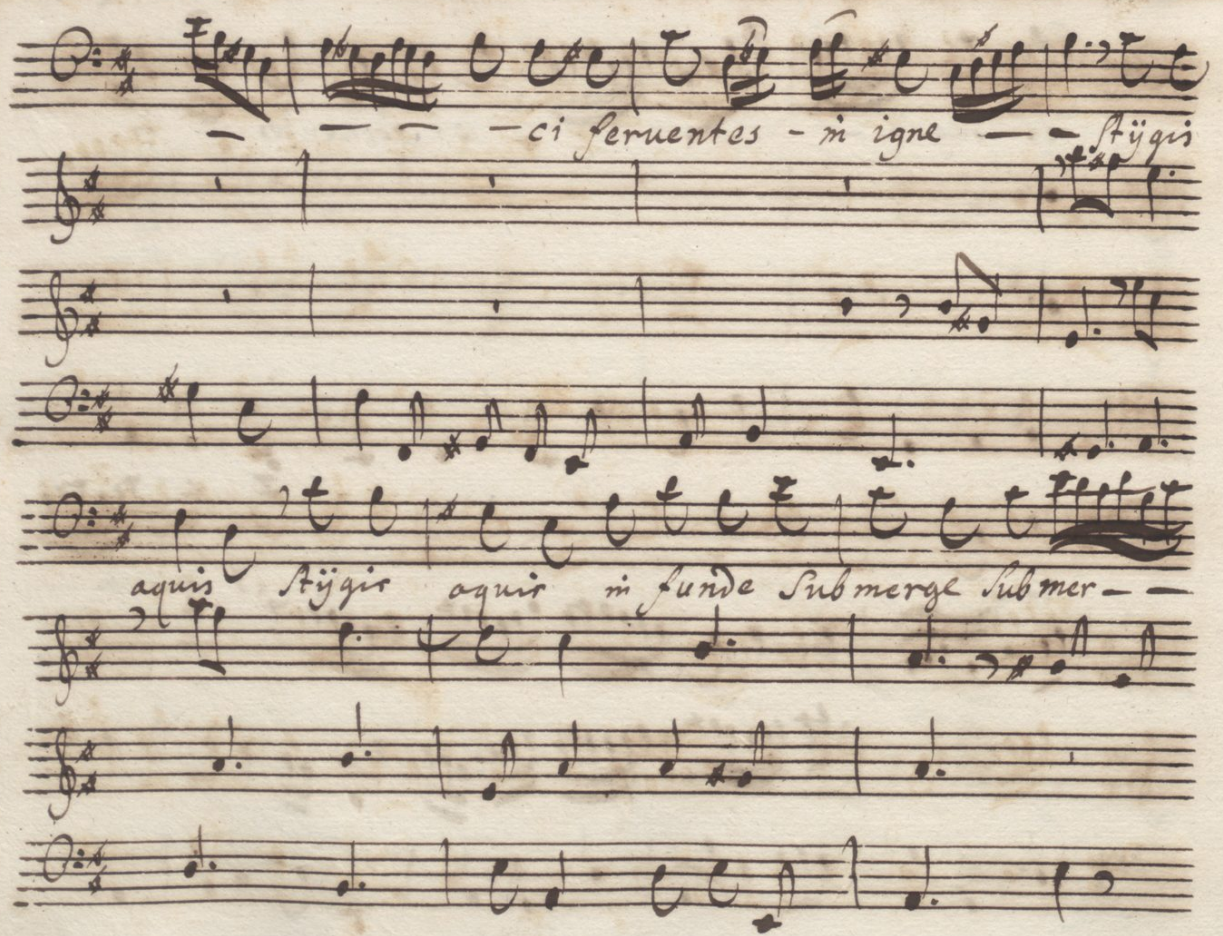 - - - -ci feruentes - in igne - - Stÿgis
aquis Stÿgis aquis in funde Submerge Submer- -